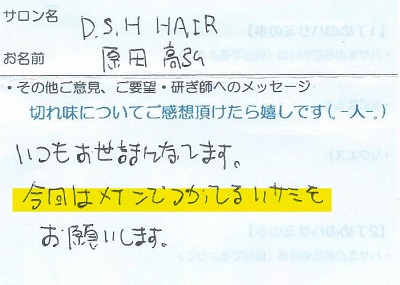 サロン名 D.S.H HAIR
お名前 原田 高弘
・その他ご意見、ご要望・研ぎ師へのメッセージ
切れ味についてご感想頂けたら嬉しです(｡-人-｡)
いつもお世話になってます。
今回はメインでつかってるハサミを
お願いします。